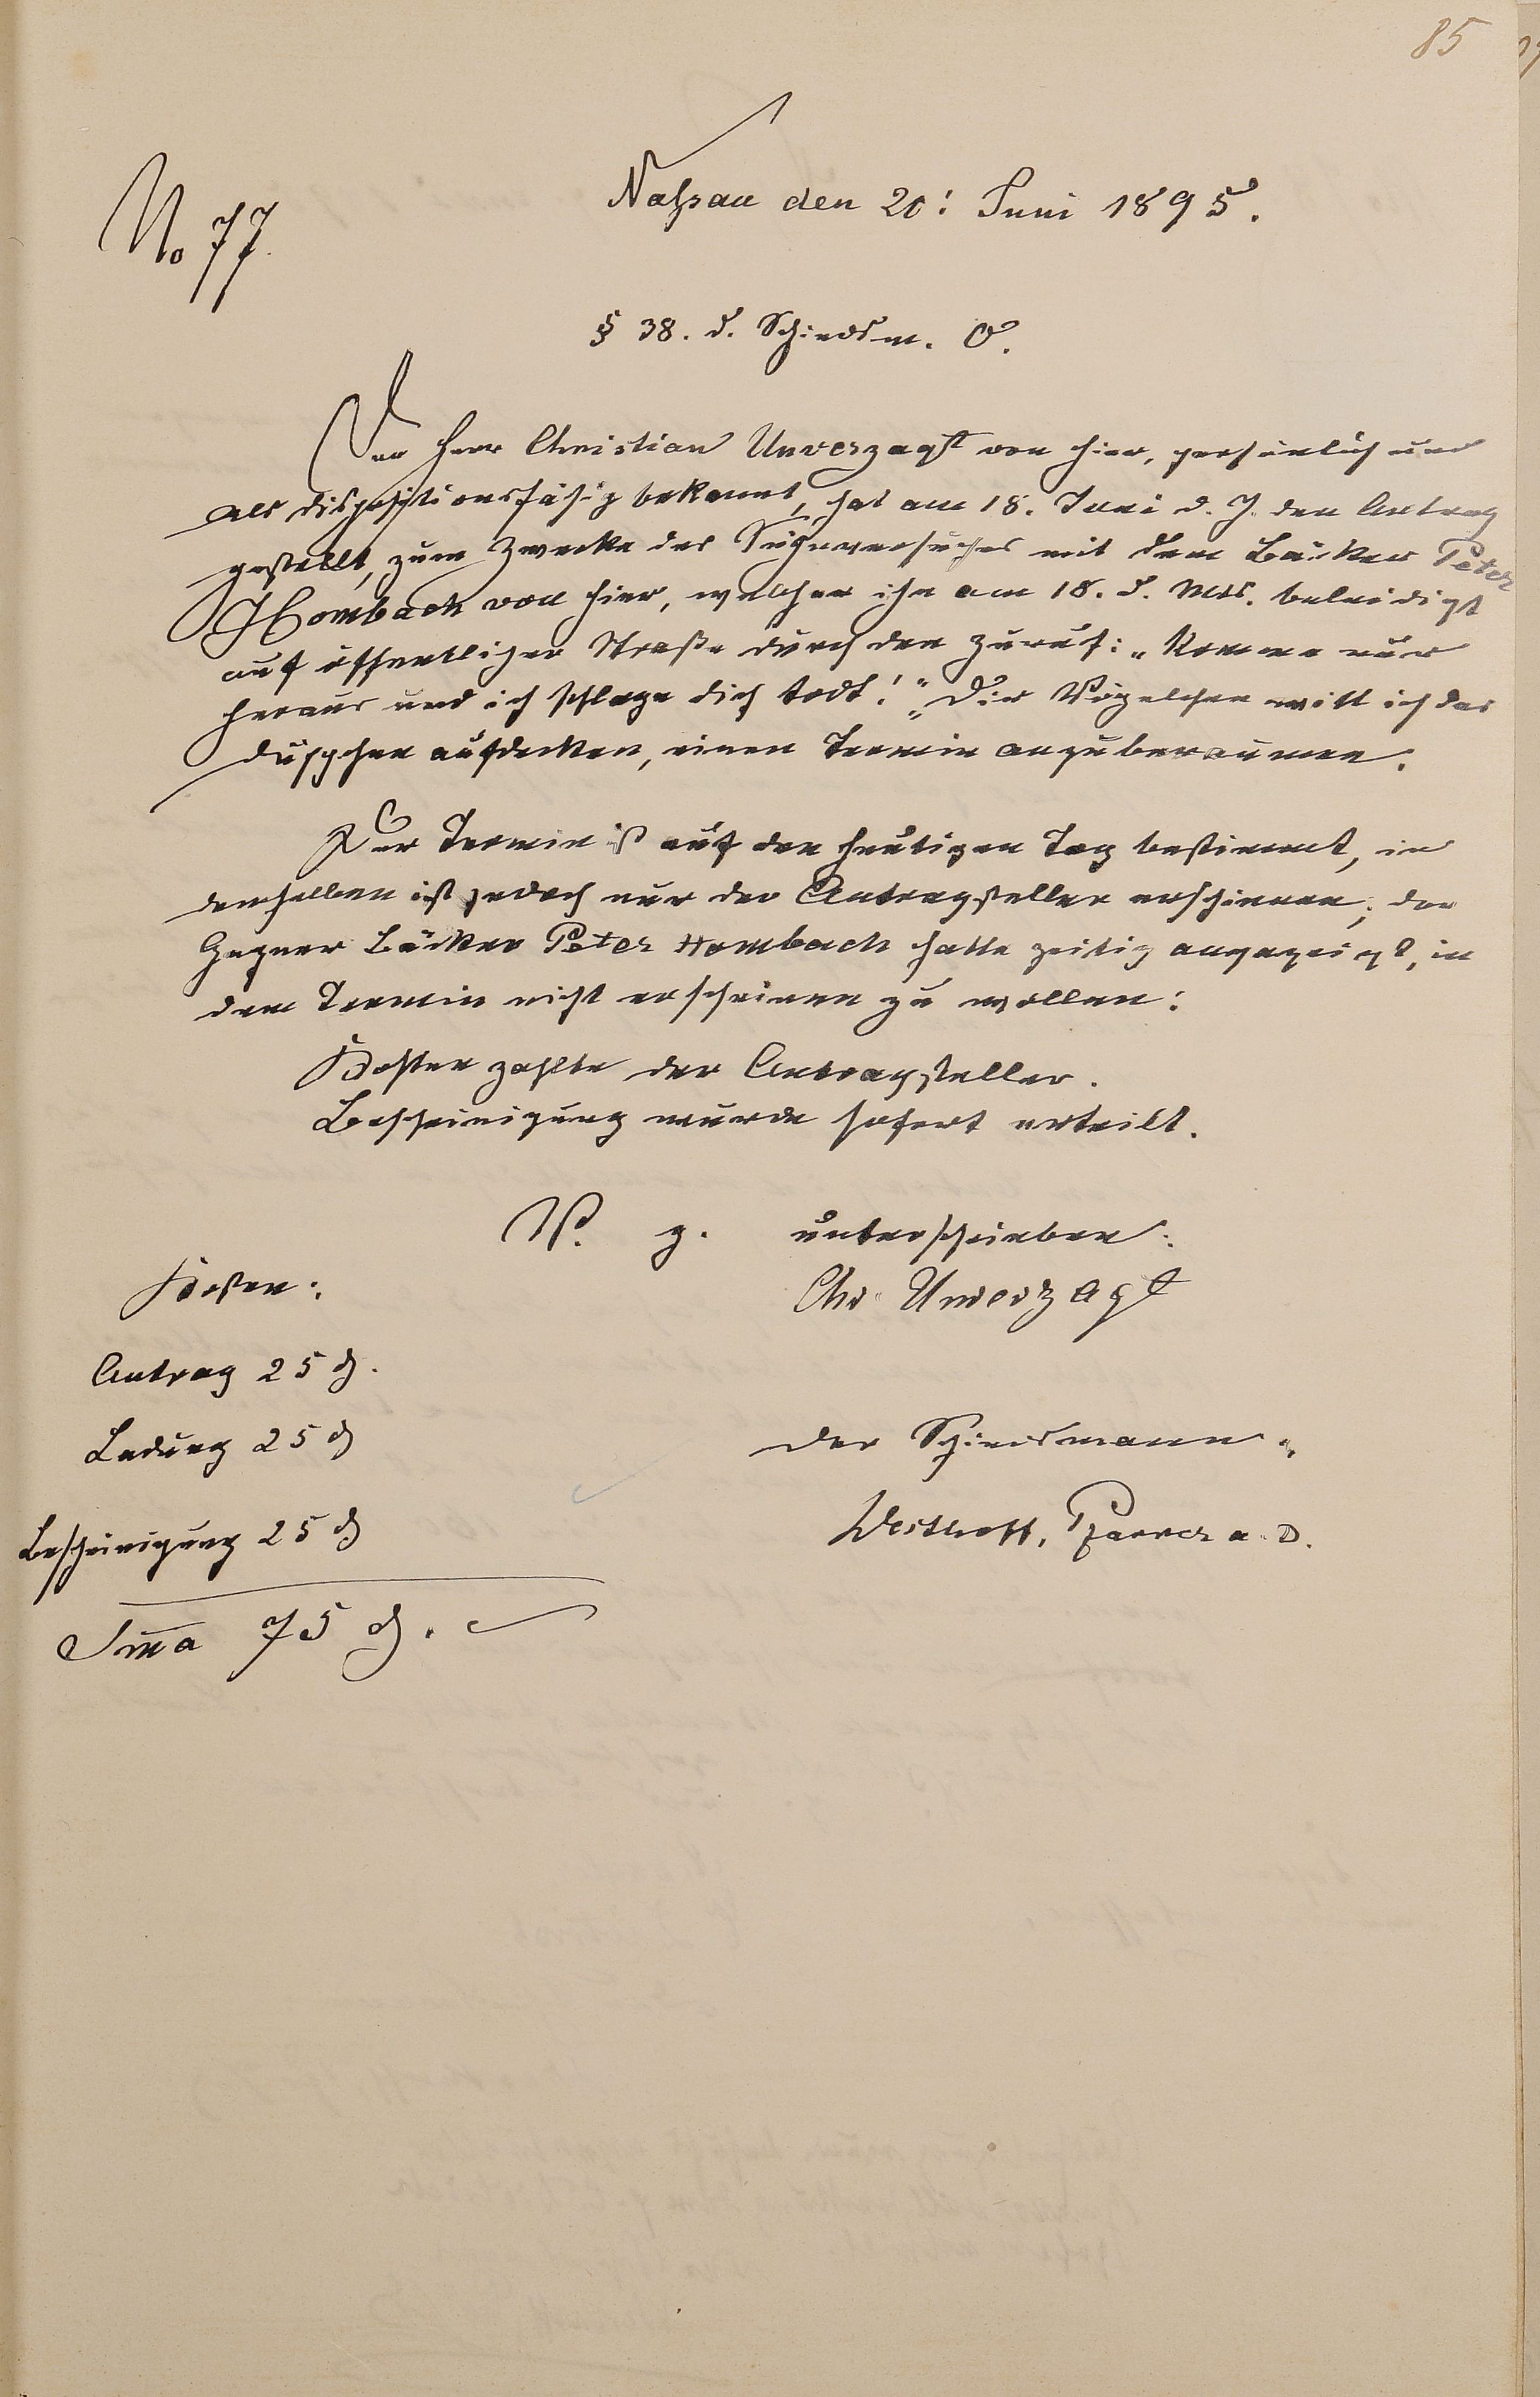 85
No 77.
Naßau den 20: Juni 1895.
§ 38. d. Schiedsm. O.
Der Herr Christian Unverzagt von hier, persönlich und
als dispositionsfähig bekannt, hat am 18. Juni d. J. den Antrag
gestellt, zum Zwecke des Sühneversuches mit dem Bäcker Peter
Hombach von hier, welcher ihn am 18. d. Mts. beleidigt
auf öffentlicher Straße durch den Zuruf: „Komme nur
heraus und ich schlage dich todt!" „Dir Vögelchen will ich das
Düppchen aufdecken, einen Termin anzuberaumen.
Der Termin ist auf den heutigen Tag bestimmt, in
demselben ist jedoch nur der Antragsteller erschienen; der
Gegner Bäcker Peter Hombach hatte zeitig angezeigt, in
dem Termin nicht erscheinen zu wollen:
Kosten zahlte der Antragsteller.
Bescheinigung wurde sofort erteilt.
V. g. unterschrieben:
Chr. Unverzagt
Kosten:
Antrag 25 ₰.
Ladung 25 ₰
Der Schiedsmann.
Bescheinigung 25 ₰
Westhoff, Pfarrer a. D.
Sma 75 ₰.